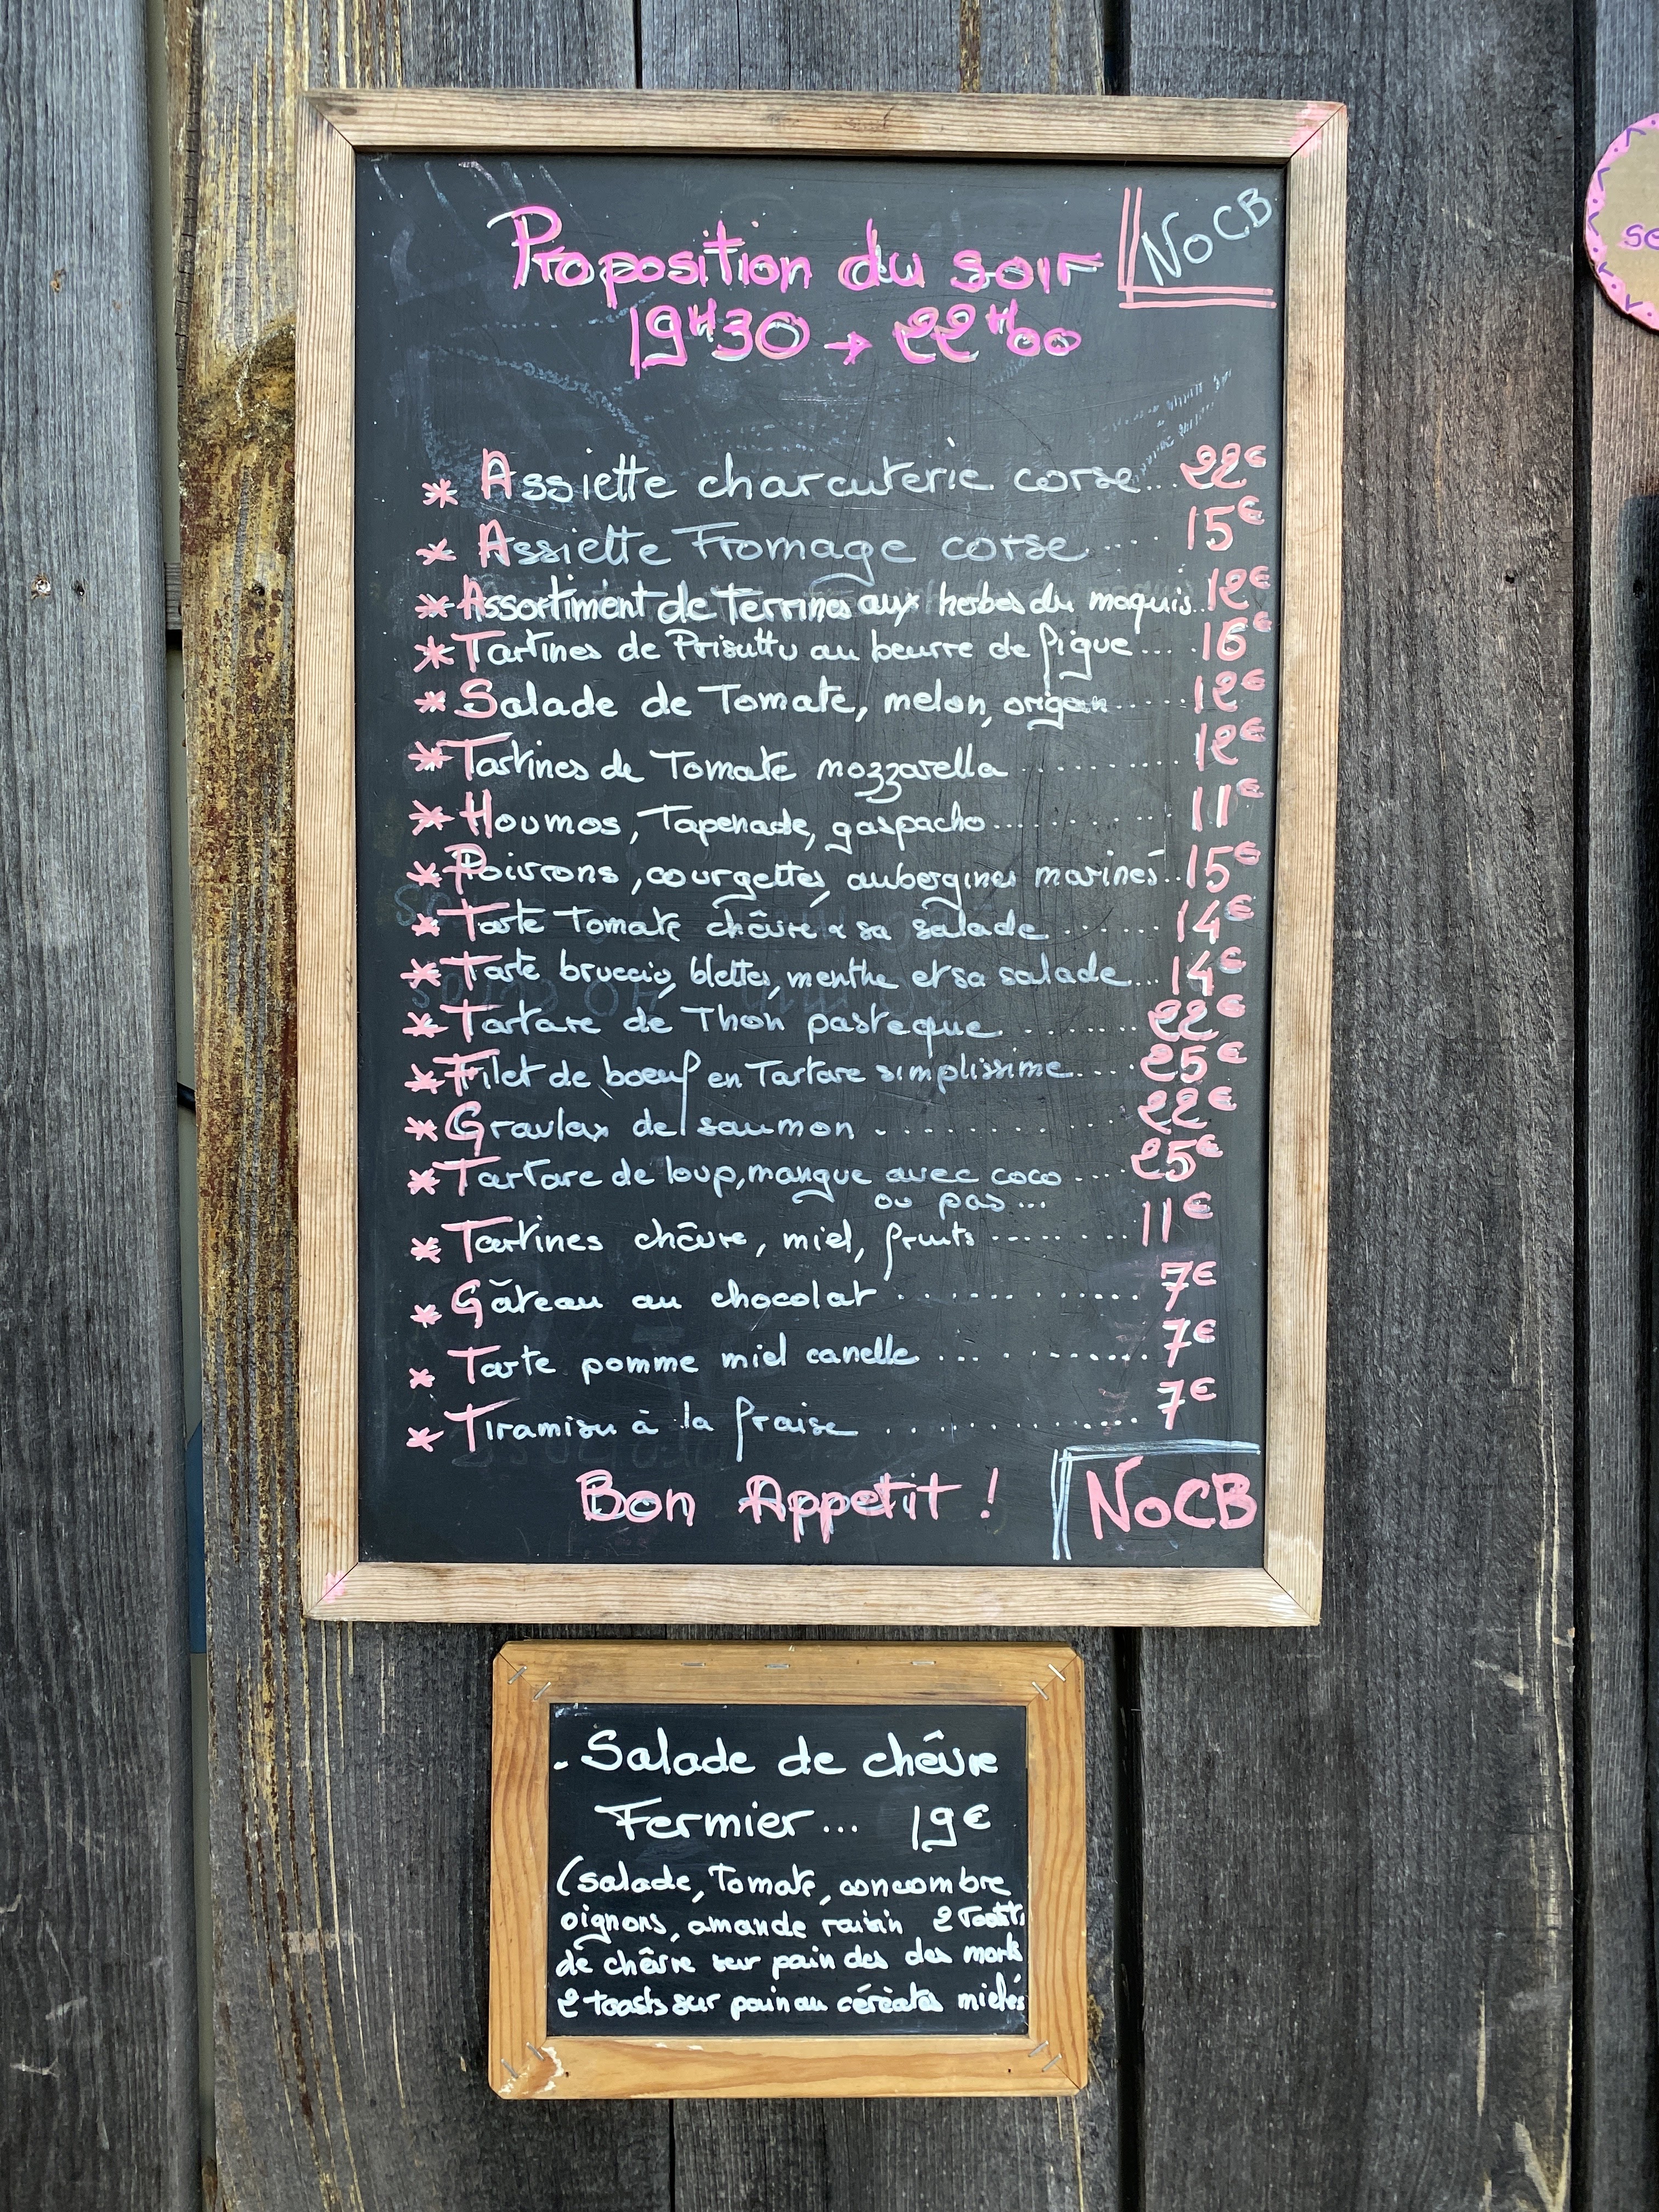 NoCB
Proposition du soir
19H30 → 22H00
* Assiette charcuterie corse... 22€
* Assiette Fromage corse .... 15€
* Assortiment de Terrines aux herbes du maquis.. 12€
* Tartines de Prisuttu au beurre de figue... . 16€
* Salade de Tomate, melon, origan ..... 12€
* Tartines de Tomate mozzarella .......... 12€
* Houmos, Tapenade, gaspacho ............ 11€
* Poivrons, courgettes, aubergines marinés.. 15€
* Tarte Tomate chêvre & sa salade ....... 14€
* Tarte bruccio, blettes, menthe et sa salade... 14€
* Tartare de Thon pasteque ......... 22€
* Filet de boeuf en Tartare simplissime.... 25€
* Gravlax de saumon ............ 22€
* Tartare de loup, mangue avec coco .... 25€
ou pas...
* Tartines chêvre, miel, fruits ......... 11€
* Gâteau au chocolat ............. 7€
* Tarte pomme miel canelle ............ 7€
* Tiramisu à la fraise ............. 7€
Bon Appetit !
NoCB
- Salade de chêvre
Fermier ... 19€
(salade, Tomate, concombre
oignons, amande raisin 2 Toasts
de chêvre sur pain des des morts
2 toasts sur pain au céréales mielés